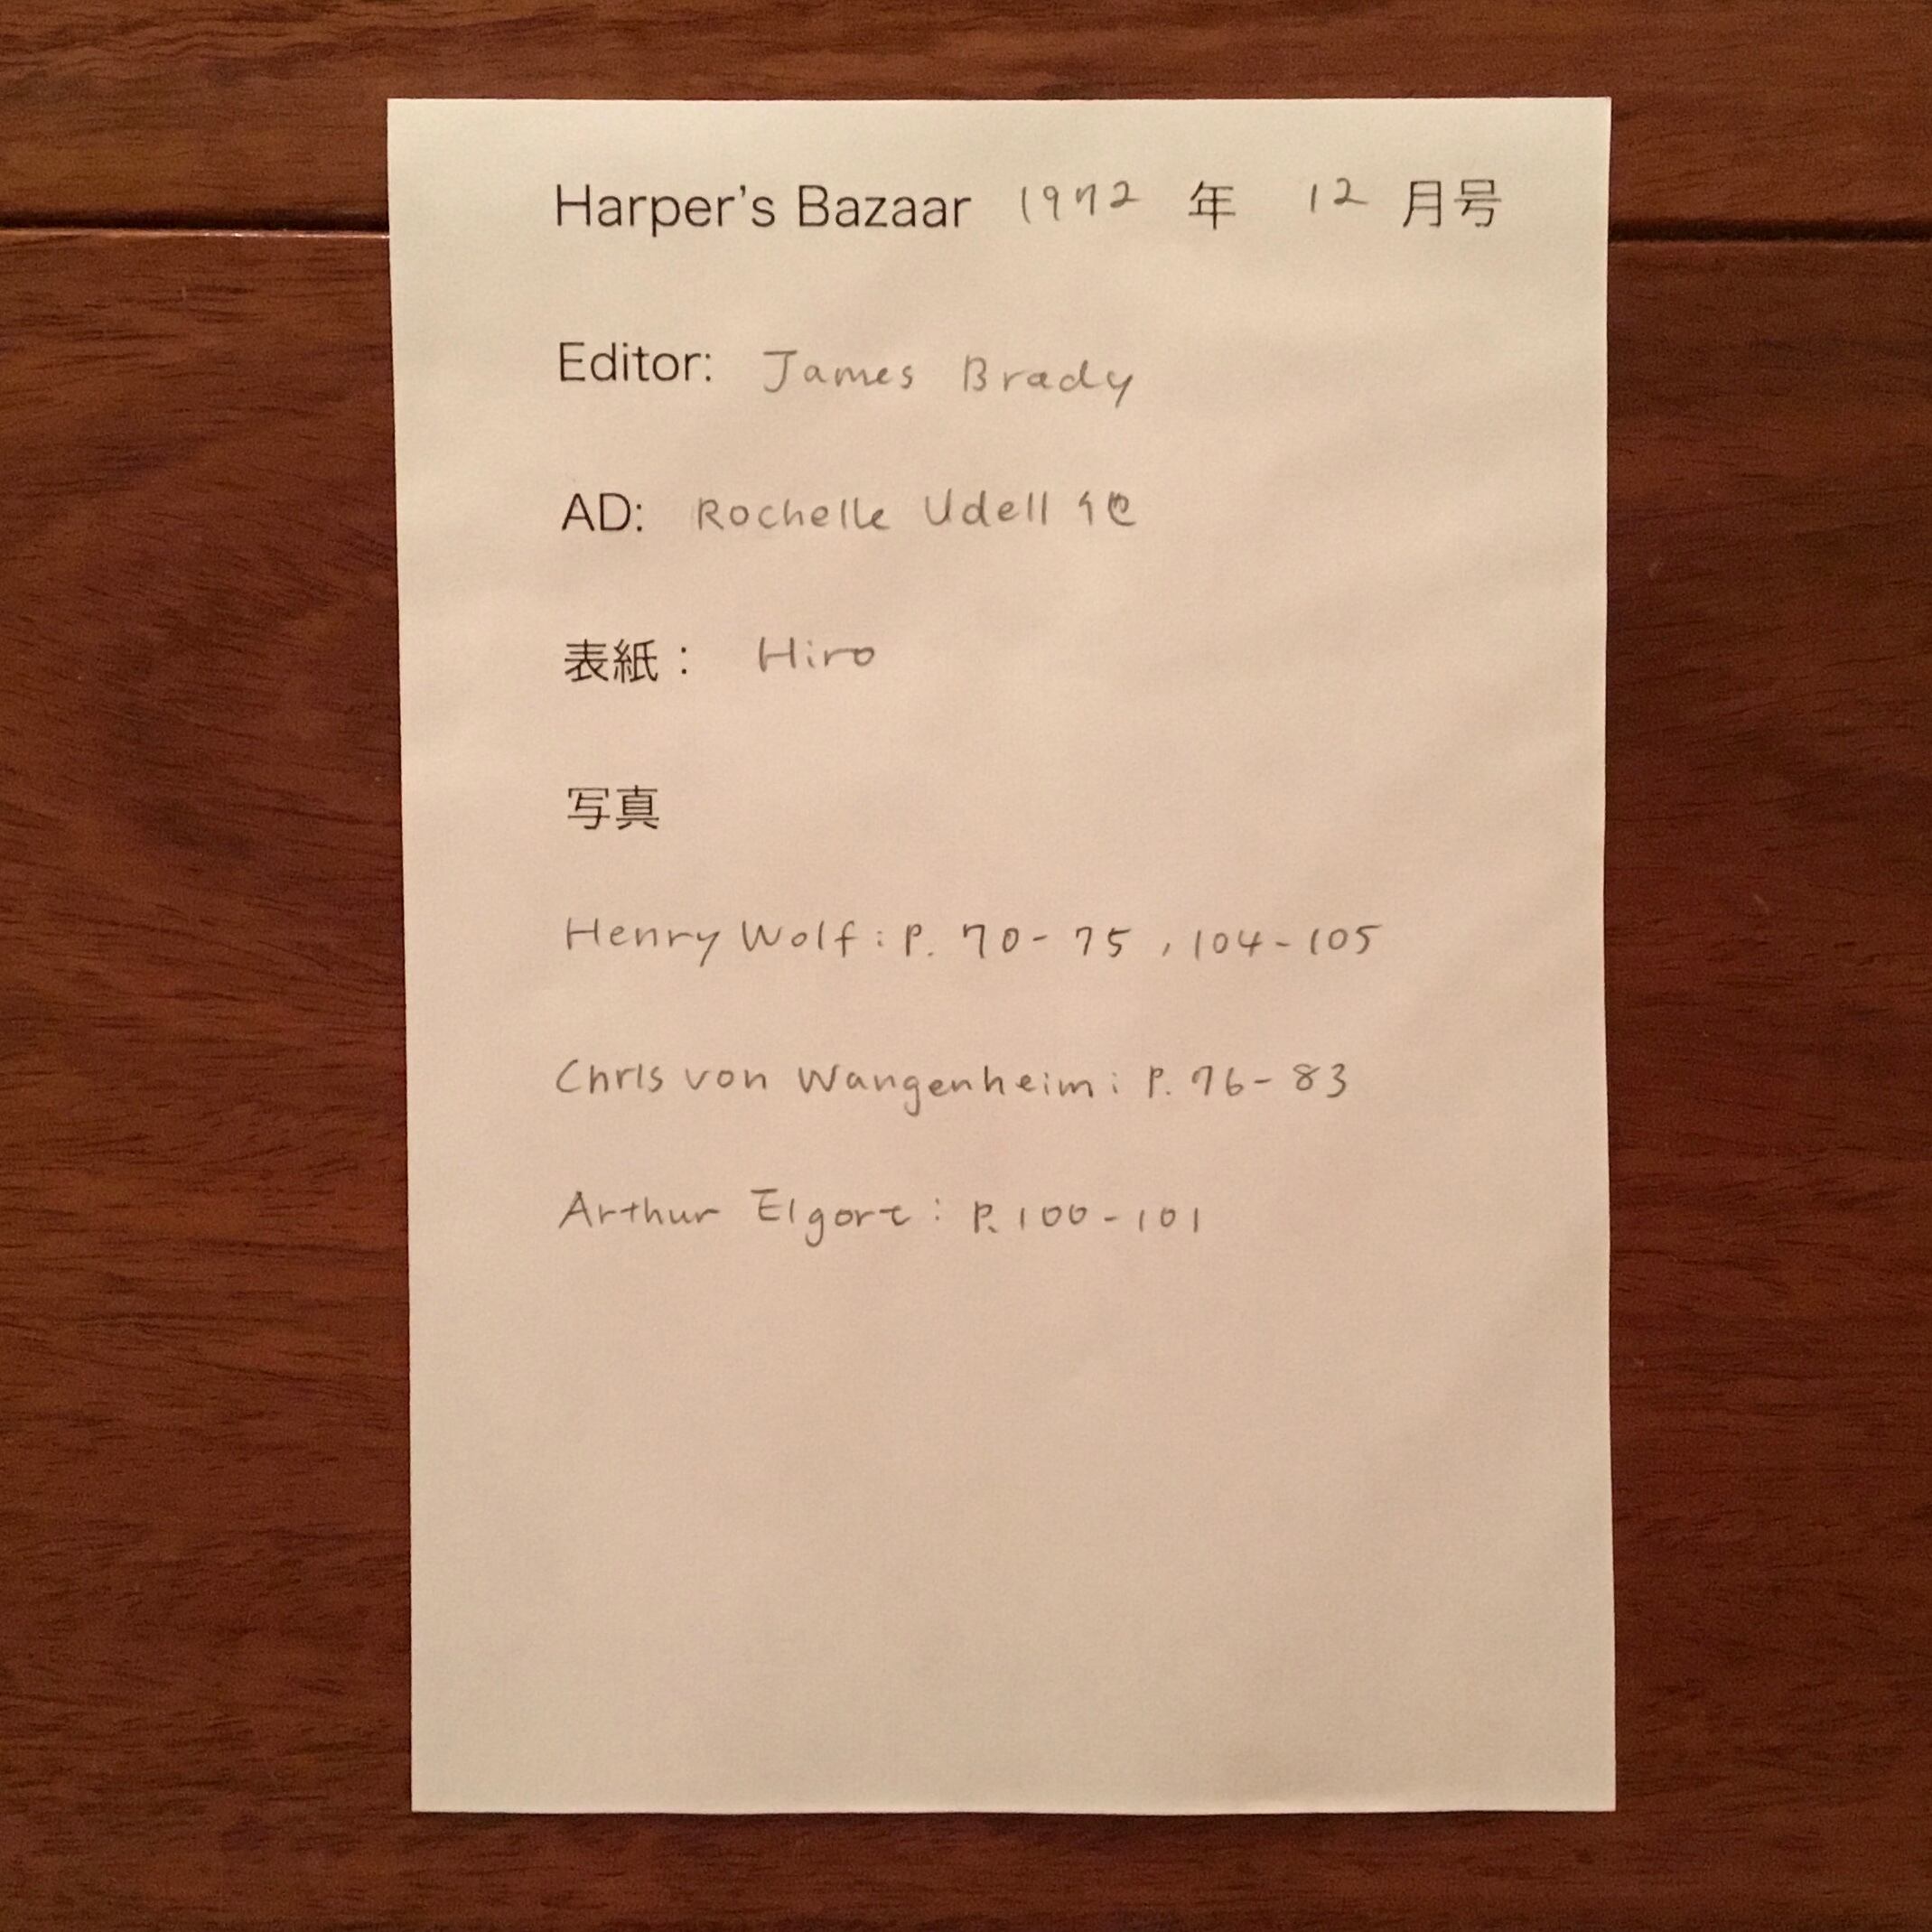 Harper's Bazaar 1972 年 12 月号
Editor: James Brady
AD: Rochelle Udell 他
表紙： Hiro
写真
Henry Wolf: P. 70-75, 104-105
Chris von Wangenheim: P. 76-83
Arthur Elgort: P. 100-101